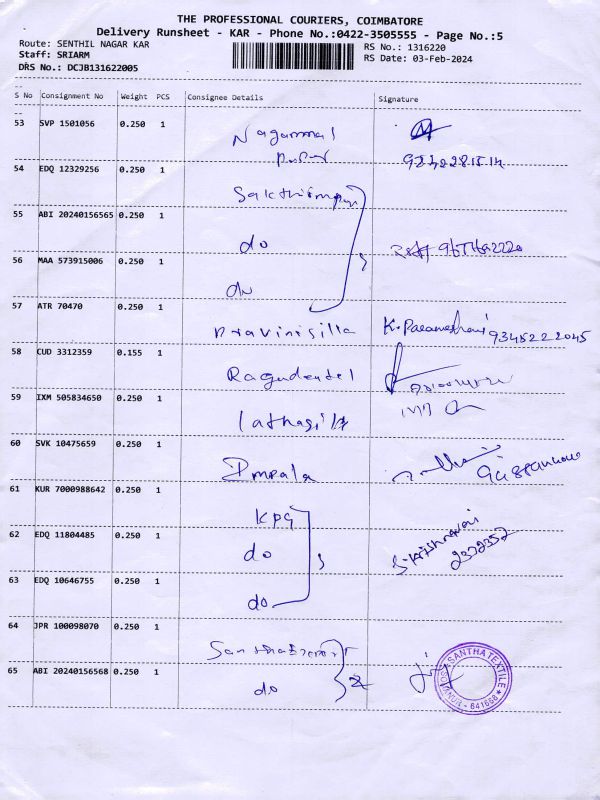 THE PROFESSIONAL COURIERS, COIMBATORE
Delivery Runsheet - KAR - Phone No.:0422-3505555 - Page No.:5
Route: SENTHIL NAGAR KAR
RS No.: 1316220
Staff: SRIARM
RS Date: 03-Feb-2024
DRS No.: DCJB131622005
S No Consignment No Weight PCS Consignee Details Signature
53 SVP 1501056 0.250 1
Nagammal
54 EDQ 12329256 0.250 1
55 ABI 20240156565 0.250 1
do
56 MAA 573915006 0.250 1
do
57 ATR 70470 0.250 1
Pravinsilla K. Parameshwari 9345222045
58 CUD 3312359 0.155 1
59 IXM 505834650 0.250 1
60 SVK 10475659 0.250 1
Impala
61 KUR 7000988642 0.250 1
KPG
62 EDQ 11804485 0.250 1
do S. Krishnaveni
2372357
63 EDQ 10646755 0.250 1
do
64 JPR 100098070 0.250 1
65 ABI 20240156568 0.250 1
do 2
SANTHA TEXTILE
641658